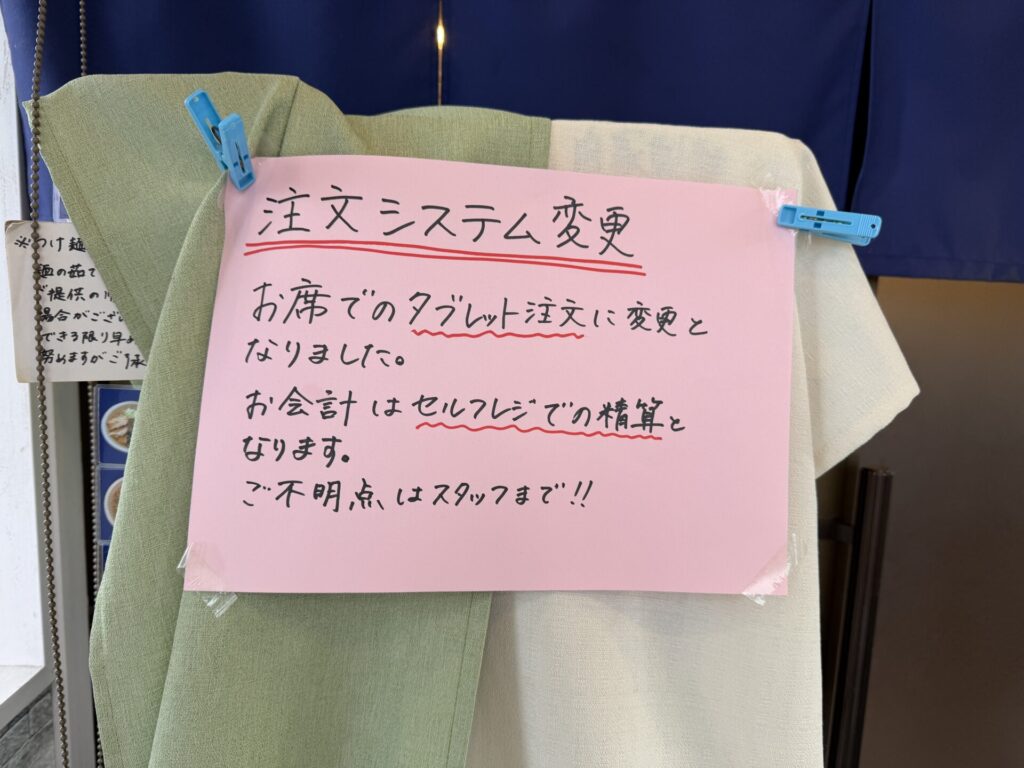 注文システム変更
お席でのタブレット注文に変更と
なりました。
お会計はセルフレジでの精算と
なります。
ご不明点はスタッフまで!!
※つけ麺
麺の茹で
ご提供の
場合がござい
できる限り早
努めますがご了承